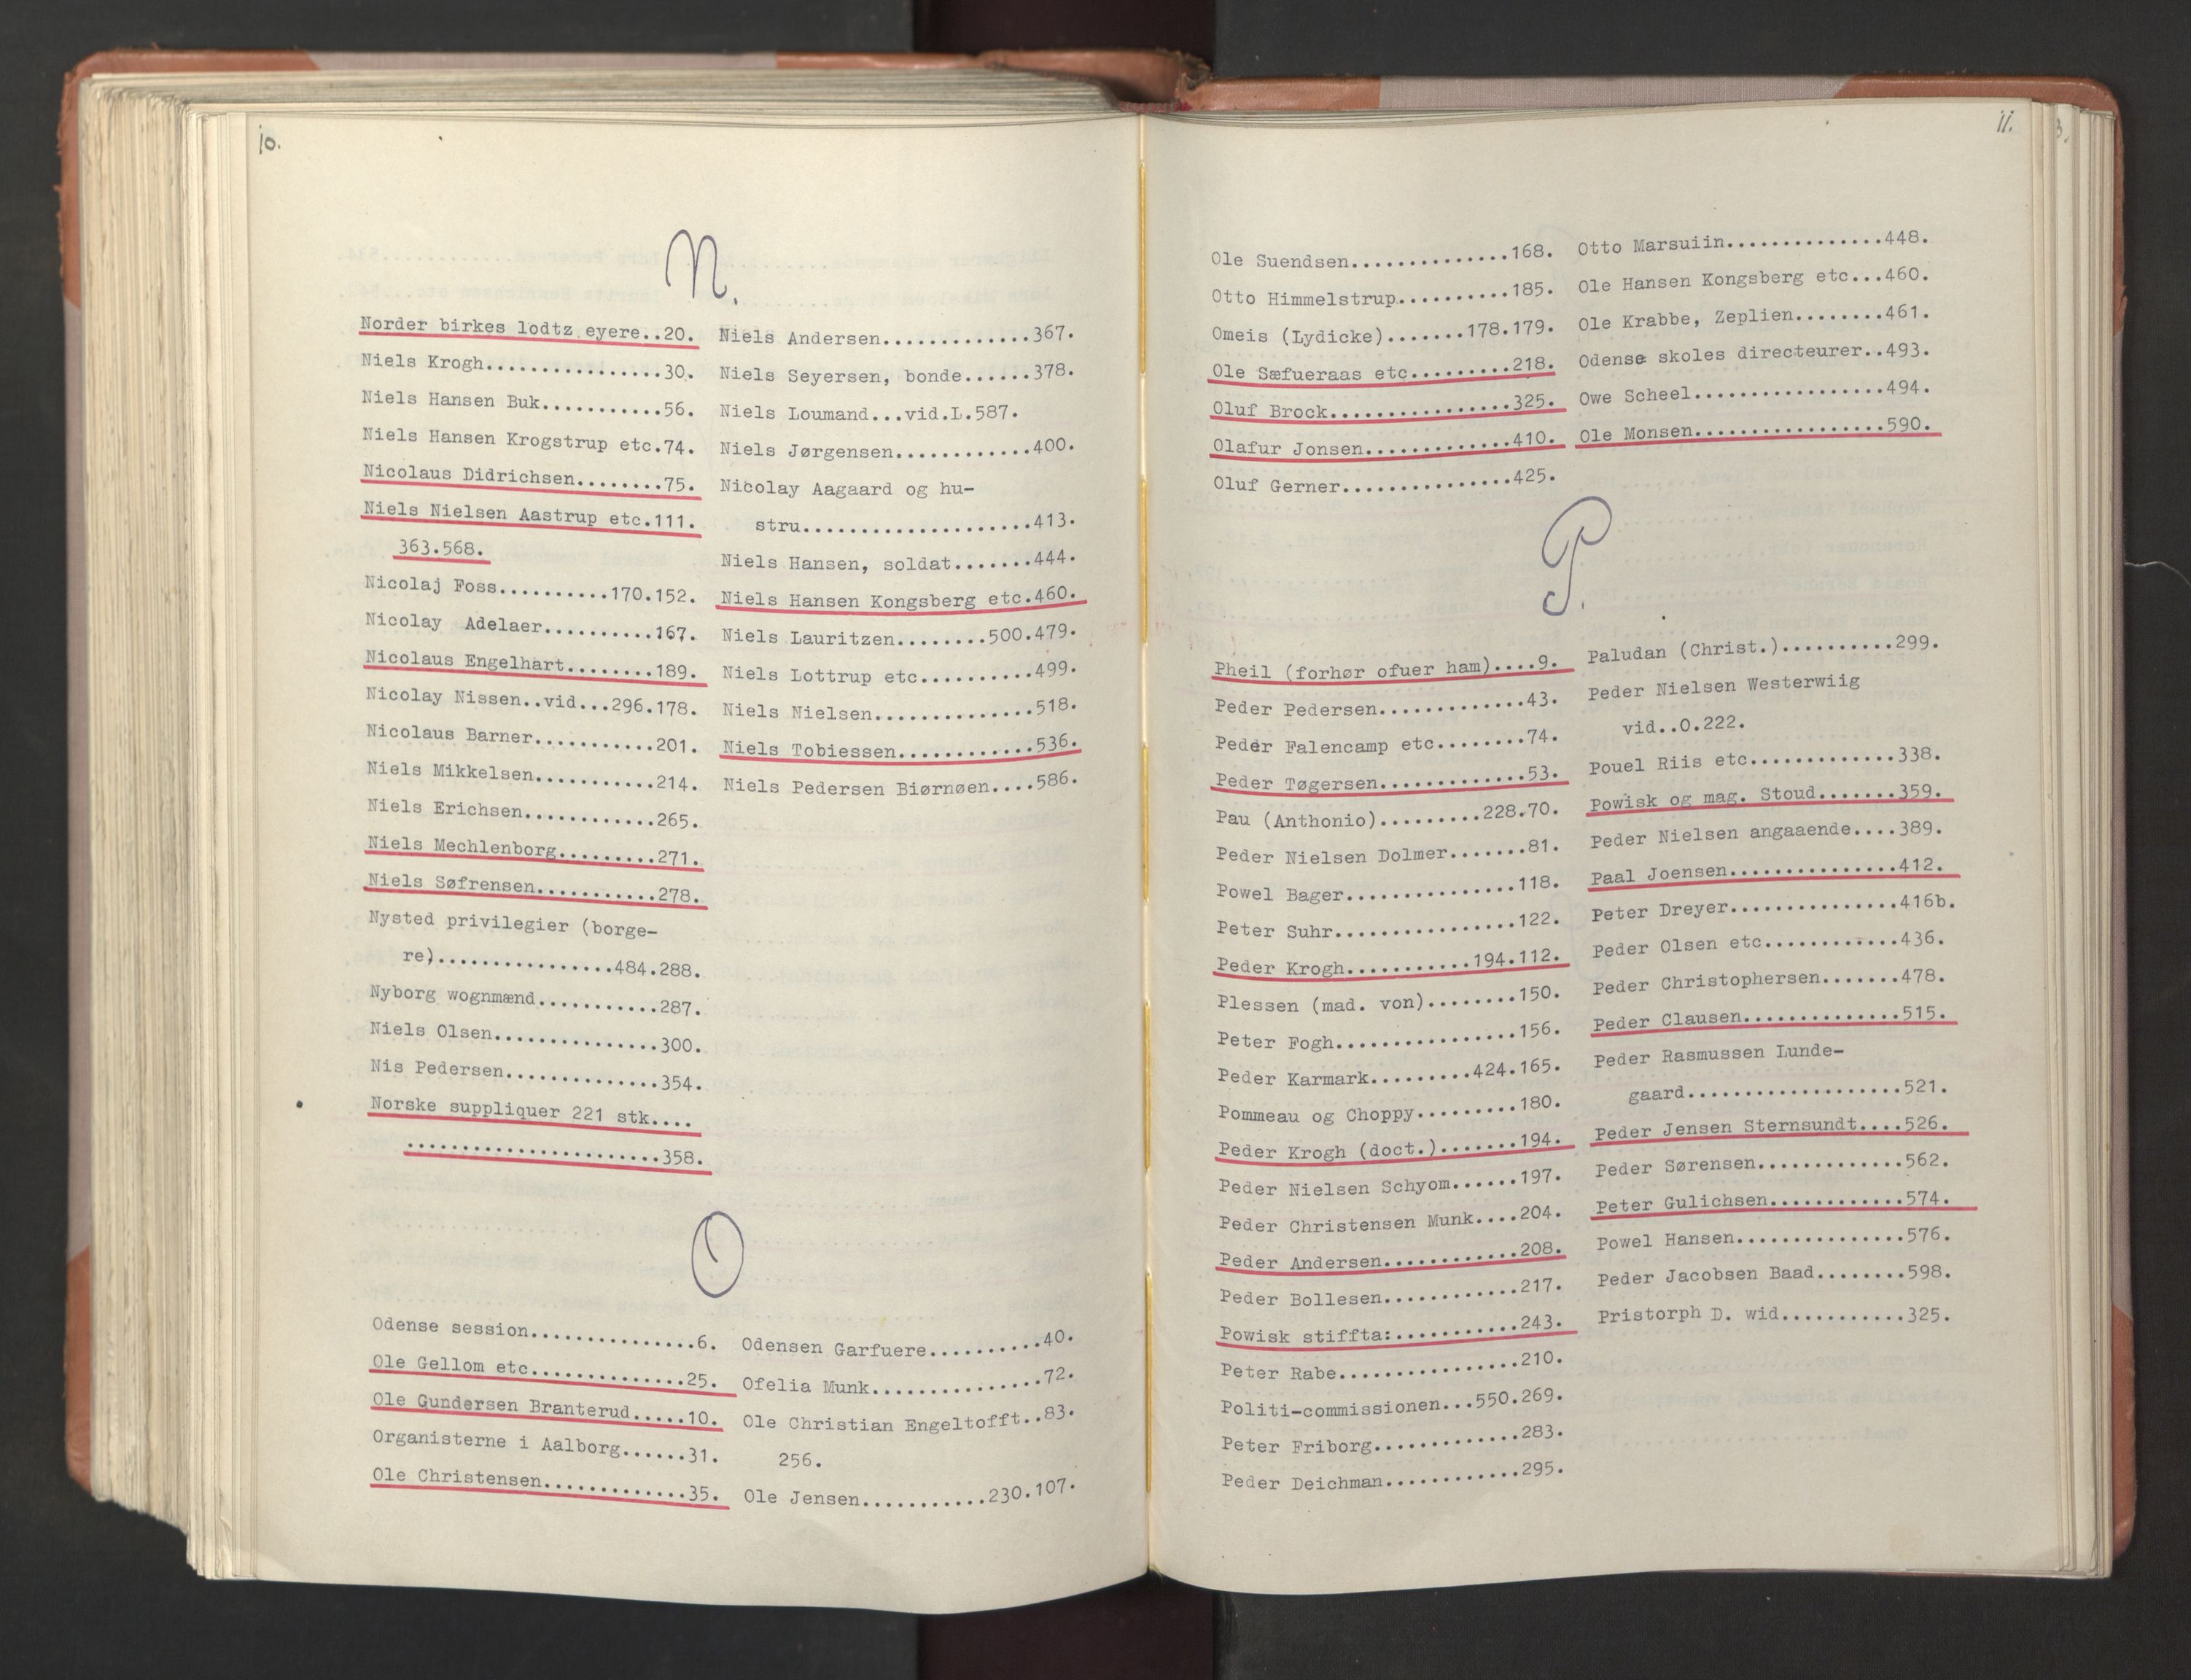 10.
N.
Norder birkes lodtz eyere..20.
Niels Krogh................30.
Niels Hansen Buk...........56.
Niels Hansen Krogstrup etc.74.
Nicolaus Didrichsen........75.
Niels Nielsen Aastrup etc.111.
363.568.
Nicolaj Foss..........170.152.
Nicolay Adelaer..........167.
Nicolaus Engelhart........189.
Nicolay Nissen..vid...296.178.
Nicolaus Barner...........201.
Niels Mikkelsen...........214.
Niels Erichsen............265.
Niels Mechlenborg.........271.
Niels Søfrensen...........278.
Nysted privilegier (borge-
re)................484.288.
Nyborg wognmænd...........287.
Niels Olsen...............300.
Nis Pedersen..............354.
Norske suppliquer 221 stk....
.......................358.
Niels Andersen.............367.
Niels Seyersen, bonde......378.
Niels Loumand...vid.L.587.
Niels Jørgensen............400.
Nicolay Aagaard og hu-
stru.....................413.
Niels Hansen, soldat.......444.
Niels Hansen Kongsberg etc.460.
Niels Lauritzen........500.479.
Niels Lottrup etc..........499.
Niels Nielsen..............518.
Niels Tobiessen............536.
Niels Pedersen Biørnøen....586.
O
Odense session...............6.
Ole Gellom etc..............25.
Ole Gundersen Branterud.....10.
Organisterne i Aalborg......31.
Ole Christensen.............35.
Odensen Garfuere..........40.
Ofelia Munk...............72.
Ole Christian Engeltofft..83.
256.
Ole Jensen...........230.107.
11.
Ole Suendsen..............168.
Otto Himmelstrup..........185.
Omeis (Lydicke).......178.179.
Ole Sæfueraas etc.........218.
Oluf Brock................325.
Olafur Jonsen.............410.
Oluf Gerner...............425.
Otto Marsuiin..............448.
Ole Hansen Kongsberg etc...460.
Ole Krabbe, Zeplien........461.
Odense skoles directeurer..493.
Owe Scheel.................494.
Ole Monsen.................590.
P.
Pheil (forhør ofuer ham)....9.
Peder Pedersen.............43.
Peder Falencamp etc........74.
Peder Tøgersen.............53.
Pau (Anthonio).........228.70.
Peder Nielsen Dolmer.......81.
Powel Bager...............118.
Peter Suhr................122.
Peder Krogh...........194.112.
Plessen (mad. von)........150.
Peter Fogh................156.
Peder Karmark.........424.165.
Pommeau og Choppy.........180.
Peder Krogh (doct.).......194.
Peder Nielsen Schyom......197.
Peder Christensen Munk....204.
Peder Andersen............208.
Peder Bollesen............217.
Powisk stiffta:...........243.
Peter Rabe................210.
Politi-commissionen...550.269.
Peter Friborg.............283.
Peder Deichman............295.
Paludan (Christ.)..........299.
Peder Nielsen Westerwiig
vid..O.222.
Pouel Riis etc.............338.
Powisk og mag. Stoud.......359.
Peder Nielsen angaaende....389.
Paal Joensen...............412.
Peter Dreyer...............416b.
Peder Olsen etc............436.
Peder Christophersen.......478.
Peder Clausen..............515.
Peder Rasmussen Lunde-
gaard...................521.
Peder Jensen Sternsundt....526.
Peder Sørensen.............562.
Peter Gulichsen............574.
Powel Hansen...............576.
Peder Jacobsen Baad........598.
Pristorph D. wid...........325.
3.